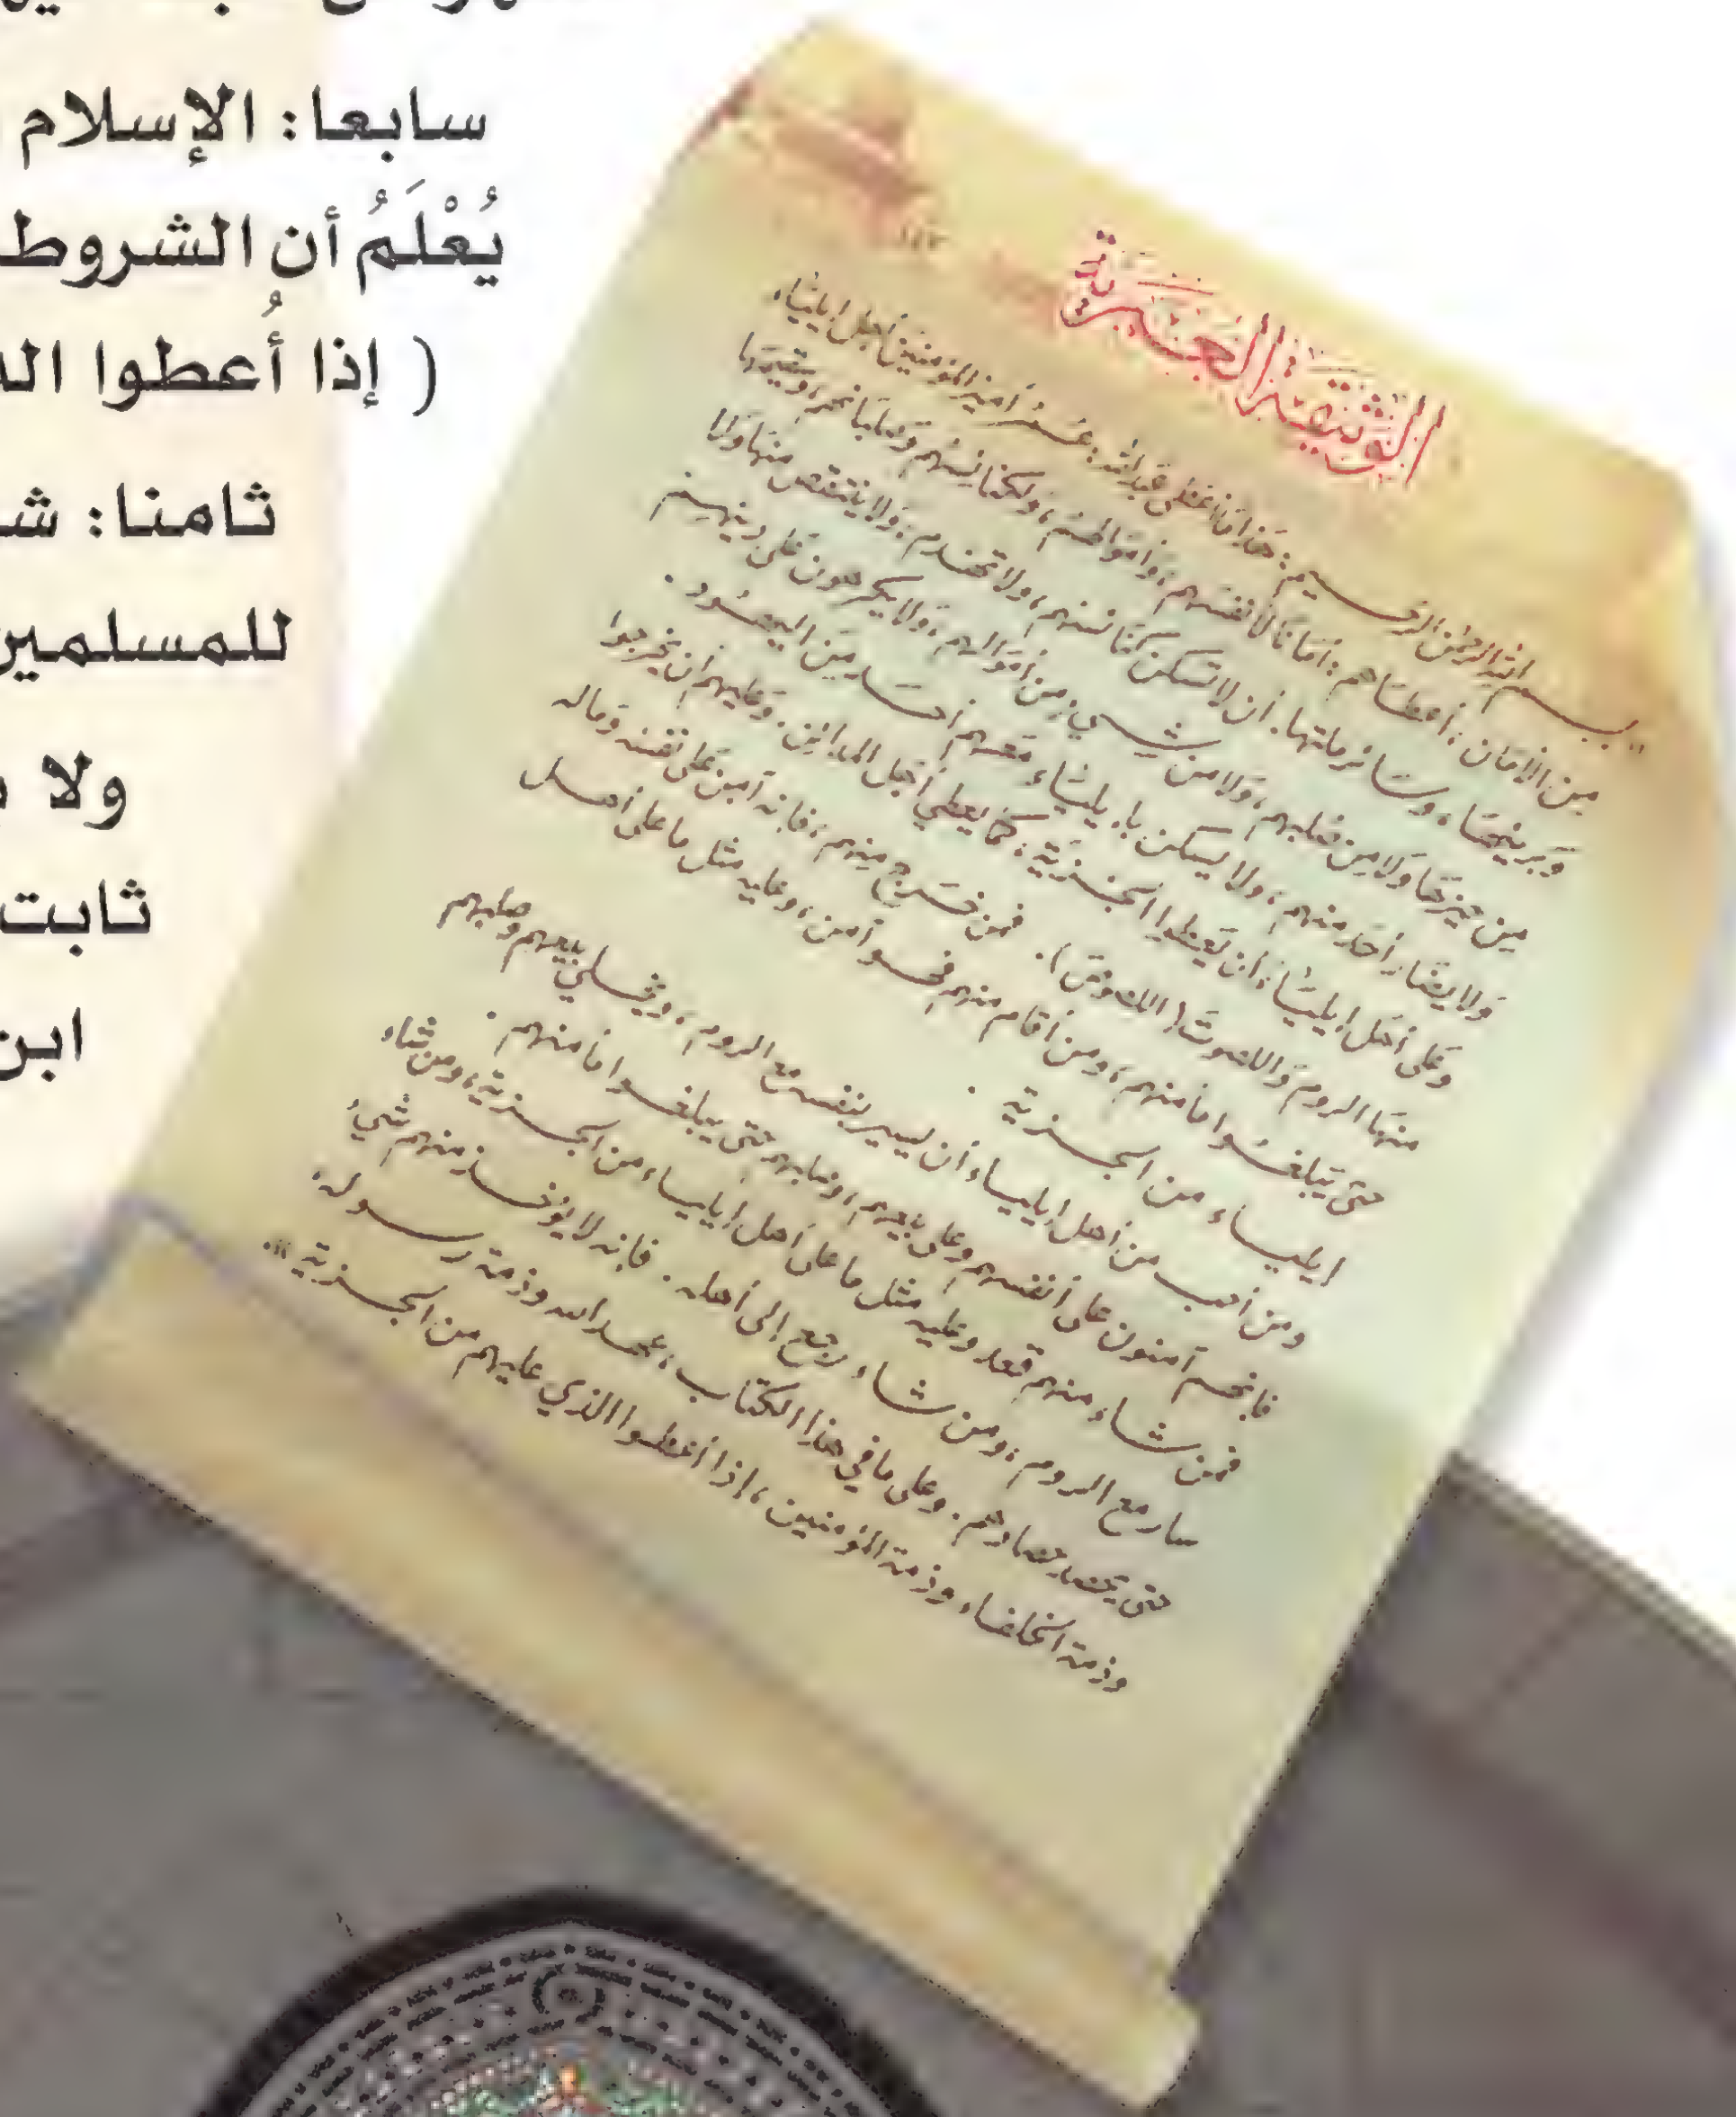 سابعا: الإسلام
يُعْلَمُ أن الشروط
( إذا أُعطوا
ثامنا:
للمسلمين
ولا
ثابت
ابن
الوثيقة العمرية
"بسم الله الرحمن الرحيم: هَذا مَا أعطى عَبد الله: عُمَرُ أمير المؤمنين أهل إيلياء
مِن الأمَان: أعطَاهم: أمَانًا لأنفسهم، وأموالهم، ولكنائسهم وَصلبانهم، وسقيمها
وَبريئهَا، وسَائر ملتها. أن لا تسكن كنَائسهم، ولا تهدم، وَلا ينتقص منهَا وَلا
مِن حيزهَا وَلا مِن صَلبهم، وَلا من شيء من أموَالهم، وَلا يكرهون عَلى دينهم
وَلا يضَار أحَد منهم، ولا يسكن بإيليَاء معهم أحَد مِنَ اليهود.
وَعَلى أهل إيليَاء: ان يعطوا الجزيَة، كما يعطي أهل المدائن. وَعليهم أن يخرجوا
منهَا الروم وَاللصوت (اللصوص). فمن خرج منهم، فإنه آمِن عَلى نفسه وَماله
حتى يَبلغوا مأمنهم، ومن أقام منهم فهو آمن، وعليه مثل ما على أهل
إيلياء من الجزية.
ومن أحب من أهل إيلياء أن يسير بنفسه مع الروم، ويخلي بيعهم وصلبهم
فإنهم آمنون على أنفسهم وعلى بيعهم، وصلبهم حتى يبلغوا مأمنهم.
فمن شاء منهم قعد وعليه مثل ما على أهل إيلياء من الجزية، ومن شاء
سار مع الروم، ومن شاء رجع إلى أهله. فإنه لا يؤخذ منهم شيءُ
حتى يَحصد حصادهم. وعلى ما في هذا الكتاب، عهد الله وذمة رسوله،
وذمة الخلفاء، وذمة المؤمنين، إذا أعطوا الذي عليهم من الجزية".